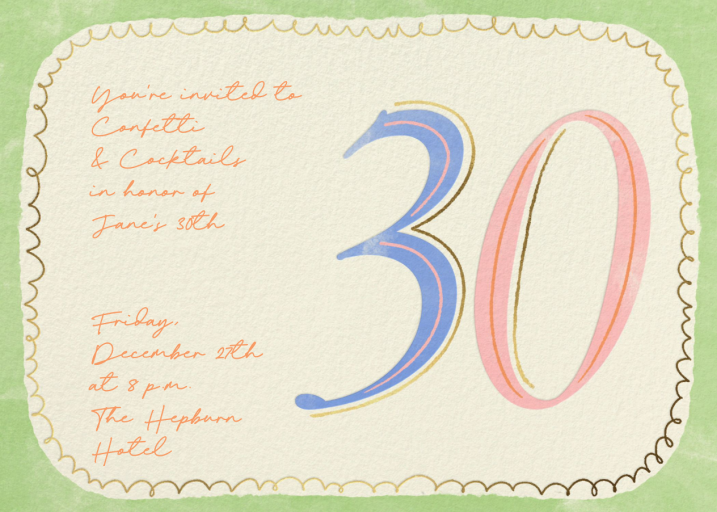 You're invited to
Confetti
& Cocktails
in honor of
Jane's 30th
30
Friday,
December 27th
at 8 p.m.
The Hepburn
Hotel